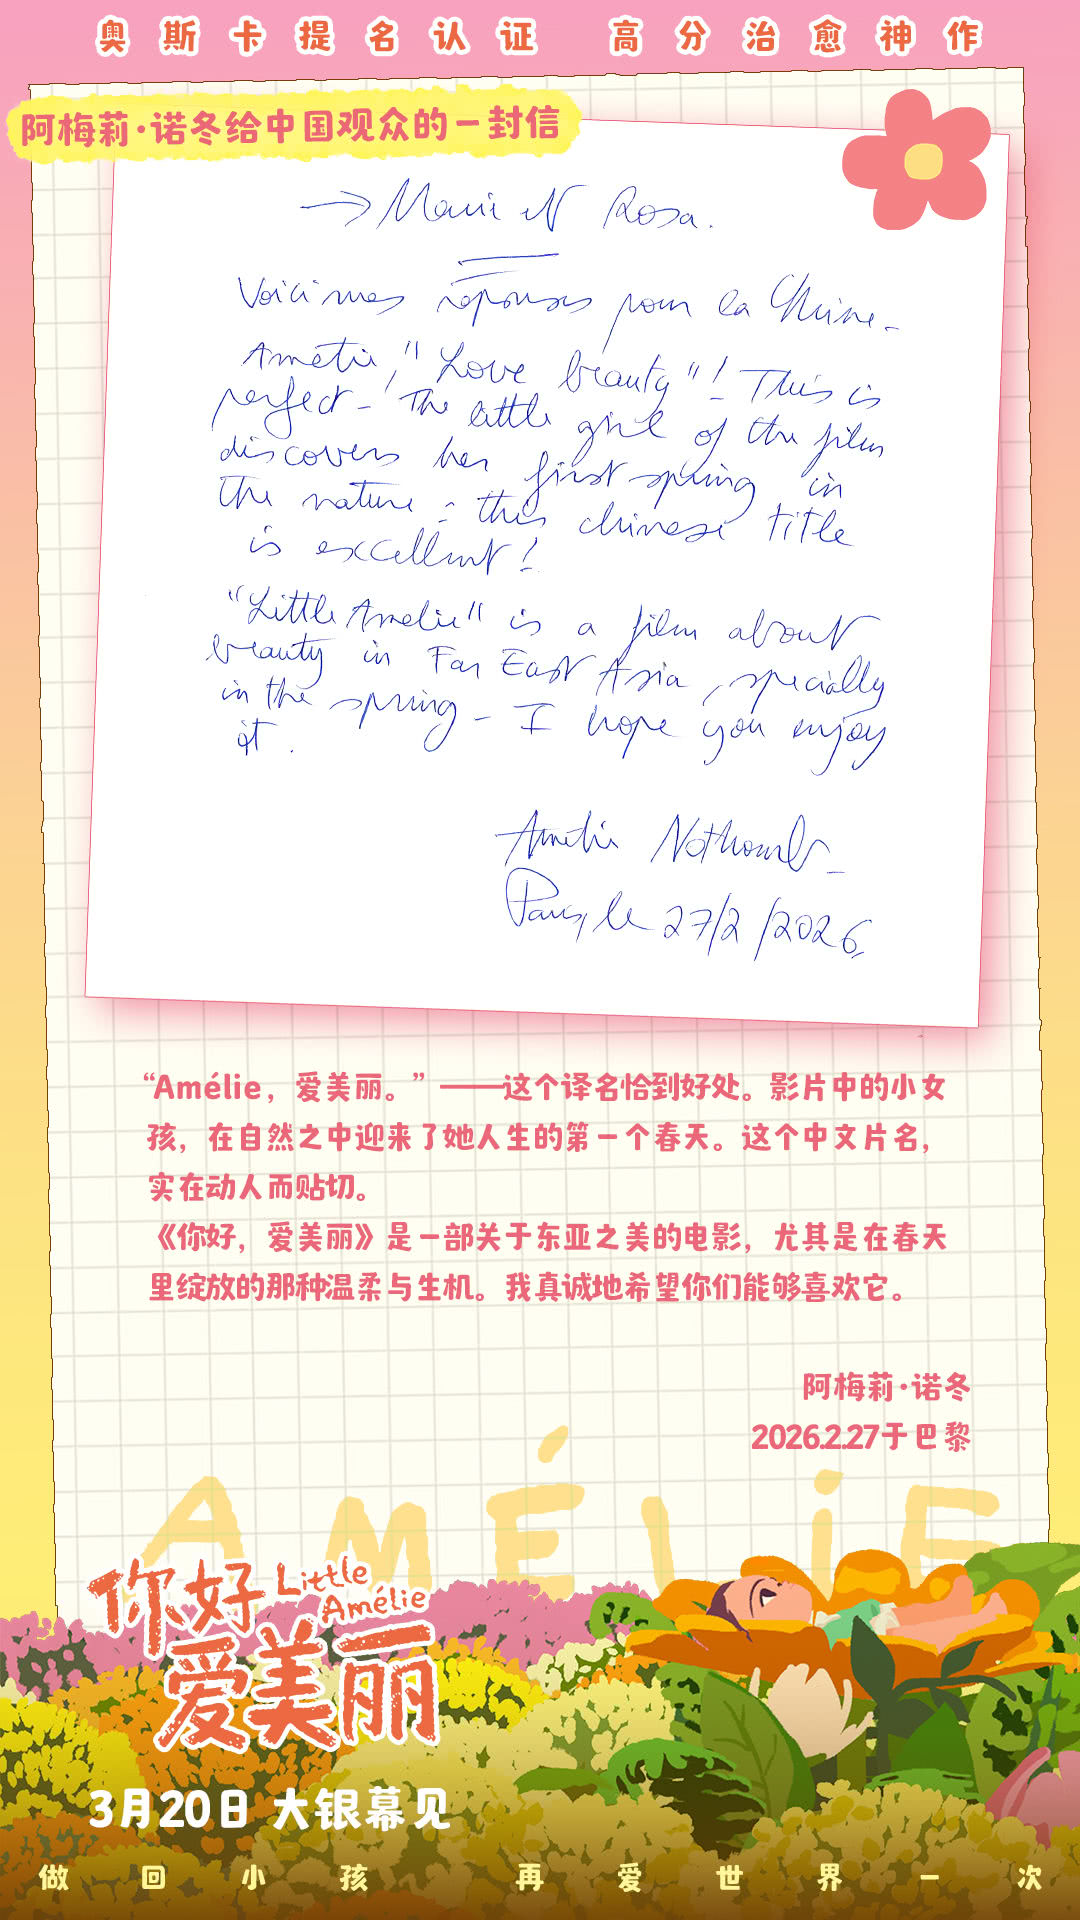 奥斯卡提名认证 高分治愈神作
阿梅莉·诺冬给中国观众的一封信
→ Marie et Rosa.
Voici mes réponses pour la Chine.
Amélie, "Love beauty"! This is
perfect - The little girl of the film
discovers her first spring in
the nature - this chinese title
is excellent!
"Little Amélie" is a film about
beauty in Far East Asia, specially
in the spring - I hope you enjoy
it.
Amélie Nothomb
Paris, le 27/2/2026
“Amélie，爱美丽。”——这个译名恰到好处。影片中的小女
孩，在自然之中迎来了她人生的第一个春天。这个中文片名，
实在动人而贴切。
《你好，爱美丽》是一部关于东亚之美的电影，尤其是在春天
里绽放的那种温柔与生机。我真诚地希望你们能够喜欢它。
阿梅莉·诺冬
2026.2.27于巴黎
AMÉLiE
你好 Little
Amélie
爱美丽
3月20日 大银幕见
做回小孩 再爱世界一次